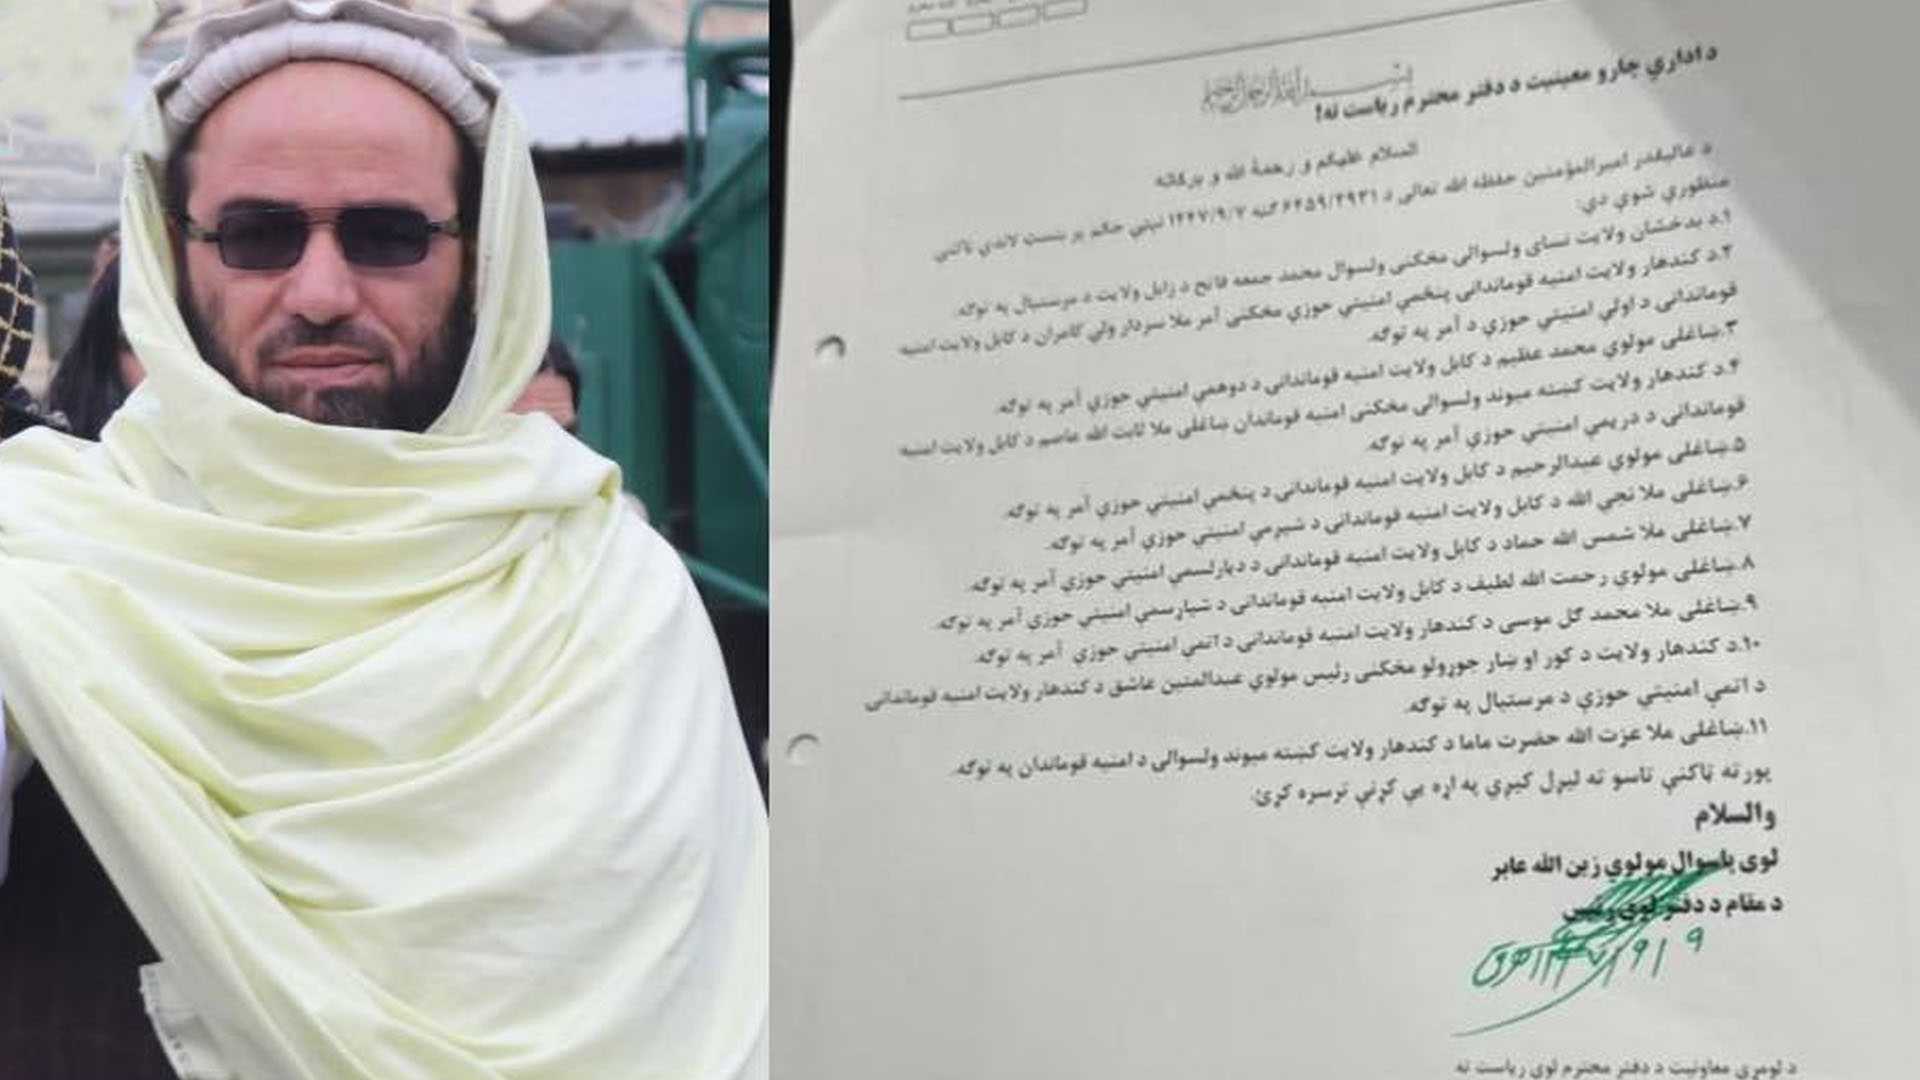 د اداري چارو معینیت د دفتر محترم ریاست ته!
السلام علیکم و رحمة الله و برکاته
د عالیقدر امیرالمؤمنین حفظه الله تعالی د ۶۴۵۹/۲۹۳۱ ګڼه ۱۴۴۷/۹/۷ نېټې حکم پر بنسټ لاندې ټاکنې
منظوري شوي دي:
۱.د بدخشان ولایت نسای ولسوالۍ مخکنی ولسوال محمد جمعه فاتح د زابل ولایت د مرستیال په توګه.
۲.د کندهار ولایت امنیه قوماندانۍ پنځمې امنیتي حوزې مخکنی آمر ملا سردار ولي کامران د کابل ولایت امنیه
قوماندانۍ د اولې امنیتي حوزې د آمر په توګه.
۳.ښاغلی مولوي محمد عظیم د کابل ولایت امنیه قوماندانۍ د دوهمې امنیتي حوزې آمر په توګه.
۴.د کندهار ولایت کښته میوند ولسوالۍ مخکنی امنیه قوماندان ښاغلی ملا ثابت الله عاصم د کابل ولایت امنیه
قوماندانۍ د دریمې امنیتي حوزې آمر په توګه.
۵.ښاغلی مولوي عبدالرحیم د کابل ولایت امنیه قوماندانۍ د پنځمې امنیتي حوزې آمر په توګه.
۶.ښاغلی ملا نجی الله د کابل ولایت امنیه قوماندانۍ د شپږمې امنیتي حوزې آمر په توګه.
۷.ښاغلی ملا شمس الله حماد د کابل ولایت امنیه قوماندانۍ د دیارلسمې امنیتي حوزې آمر په توګه.
۸.ښاغلی مولوي رحمت الله لطیف د کابل ولایت امنیه قوماندانۍ د شپاړسمې امنیتي حوزې آمر په توګه.
۹.ښاغلی ملا محمد ګل موسی د کندهار ولایت امنیه قوماندانۍ د اتمې امنیتي حوزې آمر په توګه.
۱۰.د کندهار ولایت د کور او ښار جوړولو مخکنی رئیس مولوي عبدالمتین عاشق د کندهار ولایت امنیه قوماندانۍ
د اتمې امنیتي حوزې د مرستیال په توګه.
۱۱.ښاغلی ملا عزت الله حضرت ماما د کندهار ولایت کښته میوند ولسوالۍ د امنیه قوماندان په توګه.
پورته ټاکنې تاسو ته لېږل کیږي په اړه یې کړنې ترسره کړئ.
والسلام
لوی پاسوال مولوي زین الله عابر
د مقام د دفتر لوی رئیس
د لومړي معاونیت د دفتر محترم لوی ریاست ته